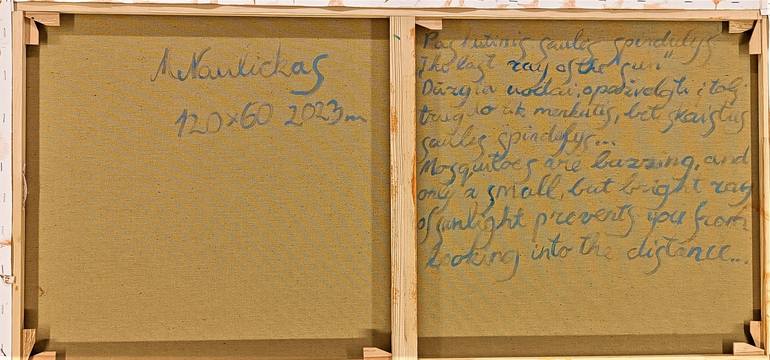 M Naulickas
120×60 2023m
Paskutinis saulės spindulys
The last ray of the sun"
Dūzgia uodai, o pažvelgti į tolį
trugdo tik menkutis, bet skaistus
saulės spindulys...
Mosquitoes are buzzing, and
only a small, but bright ray
of sunlight prevents you from
looking into the distance...